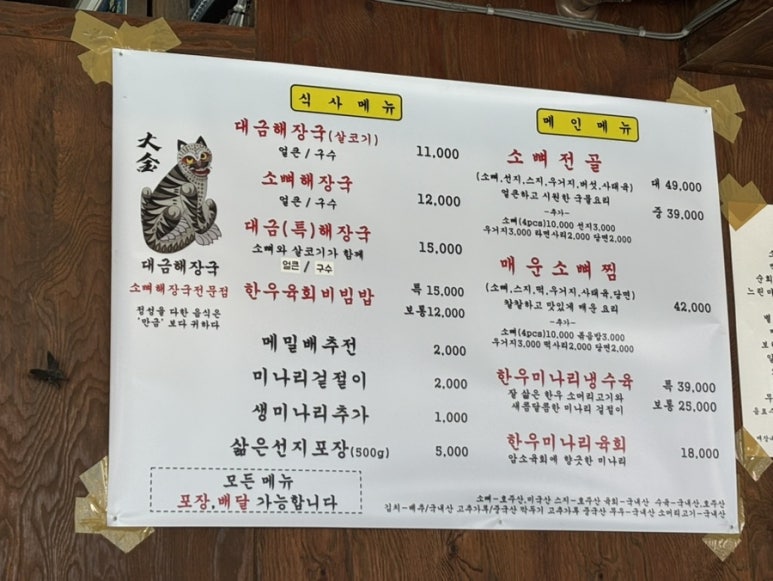 大金
대금해장국
소뼈해장국전문점
정성을 다한 음식은
'만금' 보다 귀하다
식사메뉴
대금해장국(살코기) 11,000
얼큰 / 구수
소뼈해장국 12,000
얼큰 / 구수
대금(특)해장국 15,000
소뼈와 살코기가 함께
얼큰 / 구수
한우육회비빔밥 특 15,000
보통12,000
메밀배추전 2,000
미나리겉절이 2,000
생미나리추가 1,000
삶은선지포장(500g) 5,000
모든 메뉴
포장,배달 가능합니다
메인메뉴
소뼈전골 대 49,000
(소뼈,선지,스지,우거지,버섯,사태육)
얼큰하고 시원한 국물요리 중 39,000
-추가-
소뼈(4pcs)10,000 선지3,000
우거지3,000 라면사리2,000 당면2,000
매운소뼈찜
(소뼈,스지,떡,우거지,사태육,당면) 42,000
칼칼하고 맛있게 매운 요리
-추가-
소뼈(4pcs)10,000 볶음밥3,000
우거지3,000 떡사리2,000 당면2,000
한우미나리냉수육 특 39,000
잘 삶은 한우 소머리고기와 보통 25,000
새콤달콤한 미나리 겉절이
한우미나리육회 18,000
암소육회에 향긋한 미나리
소뼈-호주산,미국산 스지-호주산 육회-국내산 수육-국내산,호주산
김치-배추/국내산 고추가루/중국산 깍두기 고추가루 중국산 무우-국내산 소머리고기-국내산